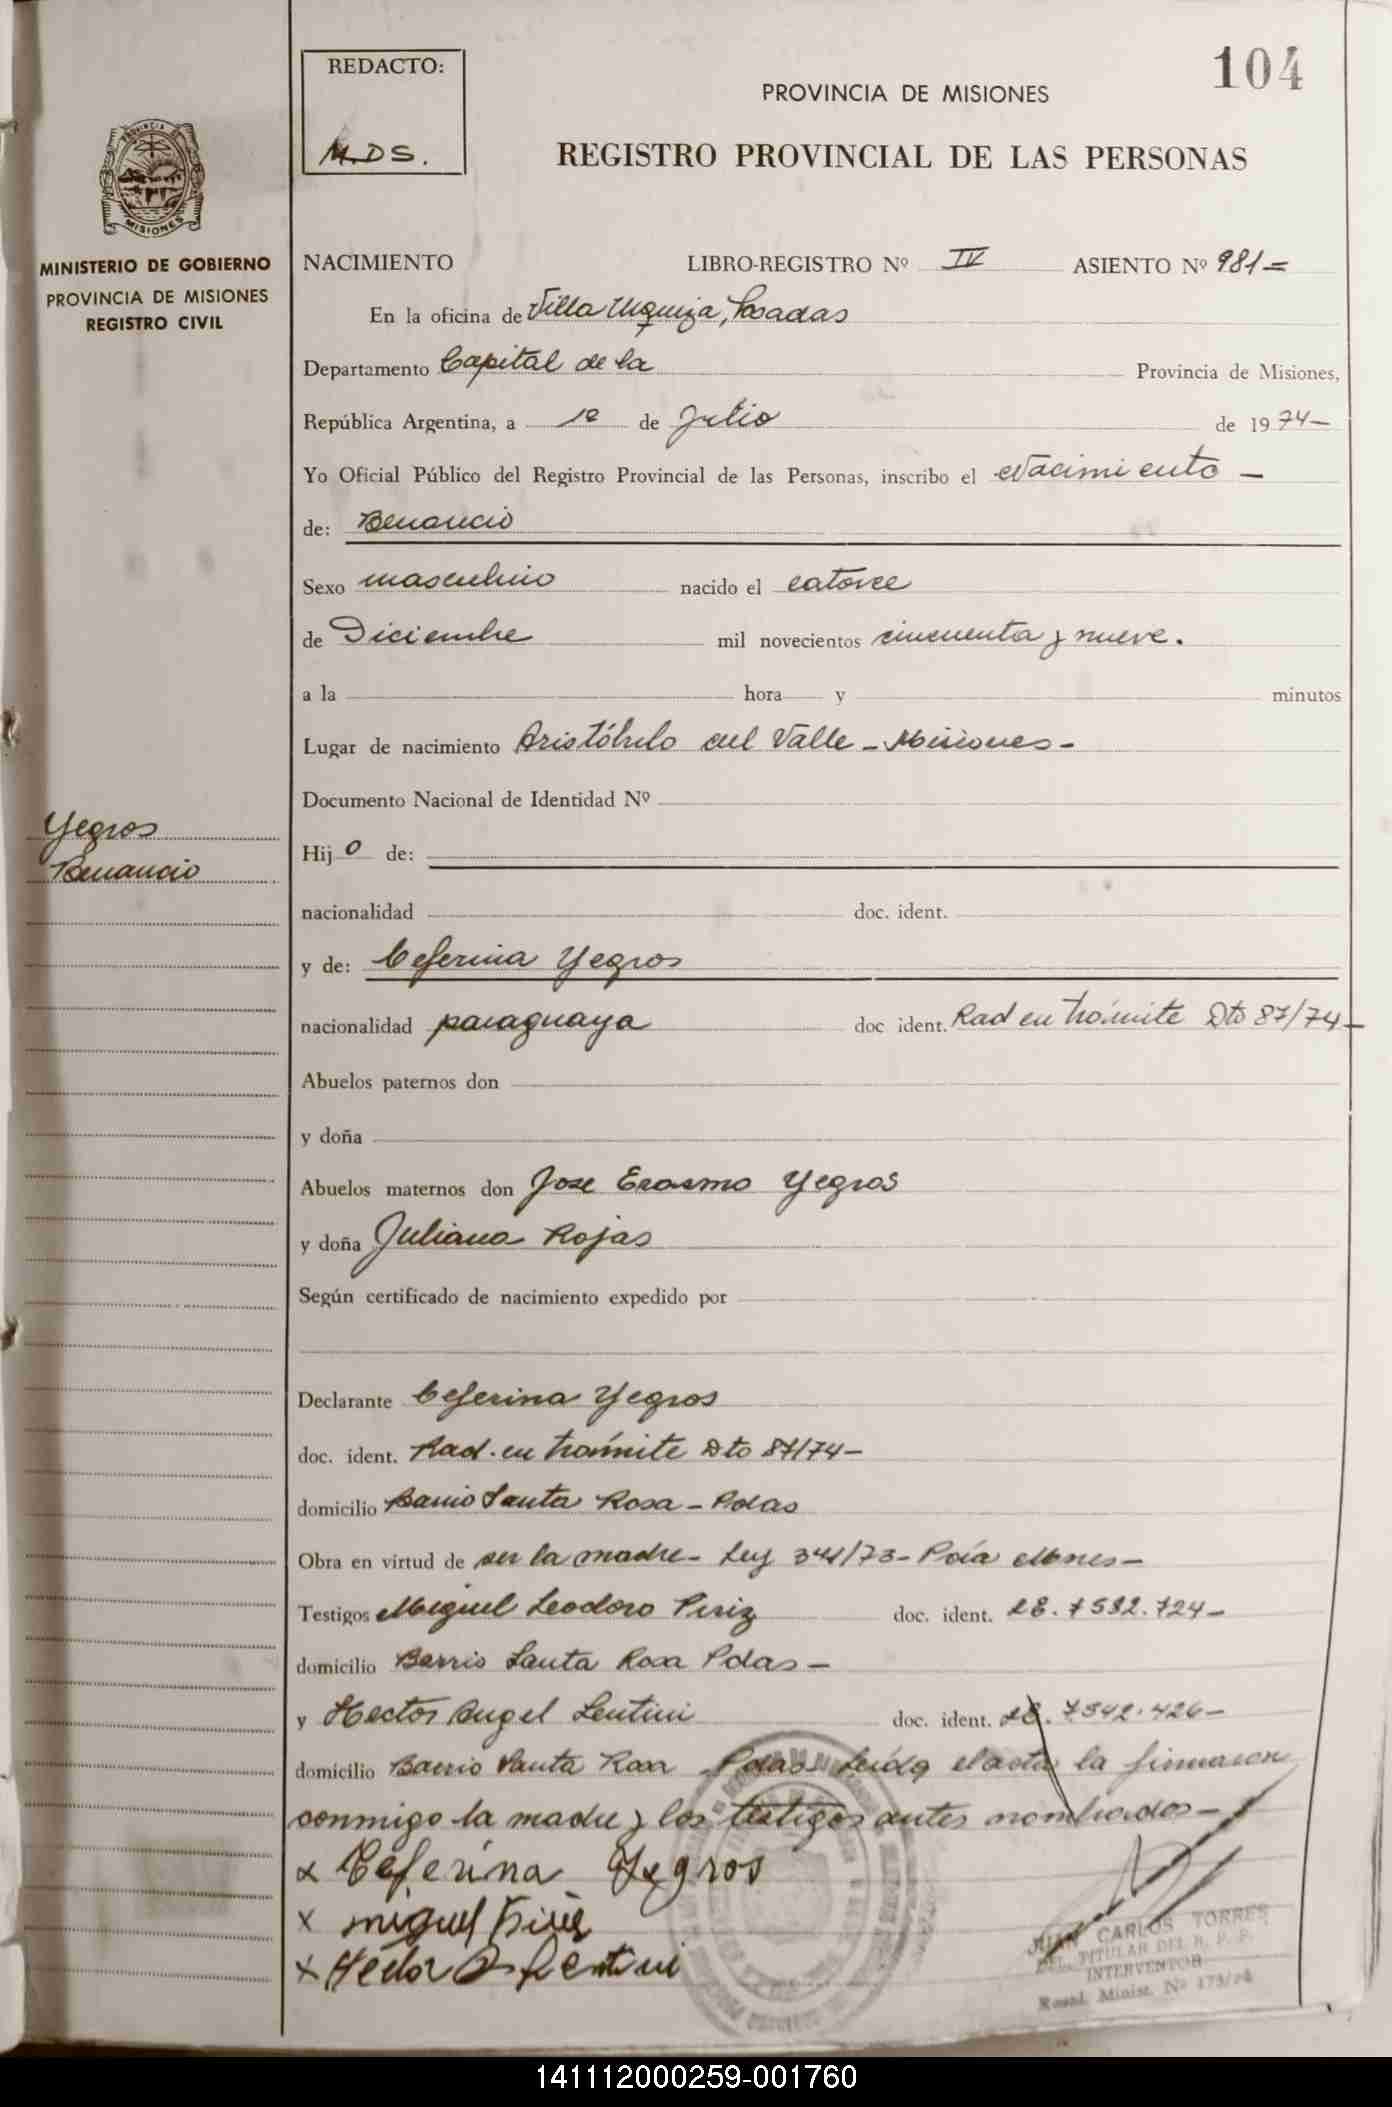 104
REDACTO:
M.D.S.
PROVINCIA DE MISIONES
REGISTRO PROVINCIAL DE LAS PERSONAS
PROVINCIA DE
MISIONES
MINISTERIO DE GOBIERNO
PROVINCIA DE MISIONES
REGISTRO CIVIL
NACIMIENTO LIBRO-REGISTRO Nº IV ASIENTO Nº 981=
En la oficina de Villa Urquiza, Posadas
Departamento Capital de la Provincia de Misiones,
República Argentina, a 1º de Julio de 1974-
Yo Oficial Público del Registro Provincial de las Personas, inscribo el Nacimiento -
de: Benancio
Sexo masculino nacido el catorce
de Diciembre mil novecientos cincuenta y nueve.
a la hora y minutos
Lugar de nacimiento Aristóbulo del Valle - Misiones -
Documento Nacional de Identidad Nº
Yegros
Benancio
Hijo de:
nacionalidad doc. ident.
y de: Ceferina Yegros
nacionalidad paraguaya doc ident. Rad en trámite Dto 87/74-
Abuelos paternos don
y doña
Abuelos maternos don Jose Erasmo Yegros
y doña Juliana Rojas
Según certificado de nacimiento expedido por
Declarante Ceferina Yegros
doc. ident. Rad. en trámite Dto 87/74-
domicilio Barrio Santa Rosa - Pdas
Obra en virtud de ser la madre - Ley 341/73 - Pcia Mnes -
Testigos Miguel Leodoro Piriz doc. ident. LE. 7582.724-
domicilio Barrio Santa Rosa Pdas -
y Hector Angel Lentini doc. ident. LE. 7542.426-
domicilio Barrio Santa Rosa Pdas. Leída el acta la firmaron
conmigo la madre y los testigos antes nombrados -
x Ceferina Yegros
x miguel Piriz
x Hector A Lentini
JUAN CARLOS TORRES
DEL. TITULAR DEL R. P. P.
INTERVENTOR
Resol. Minist. Nº 173/74
141112000259-001760